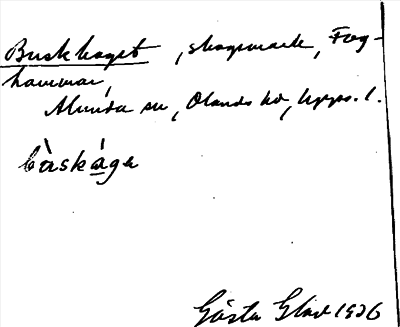 Buskhaget, skogsmark, Fog-
hammar,
Alunda sn, Olands hd, Upps. l.
bàskága
Gösta Glav 1926